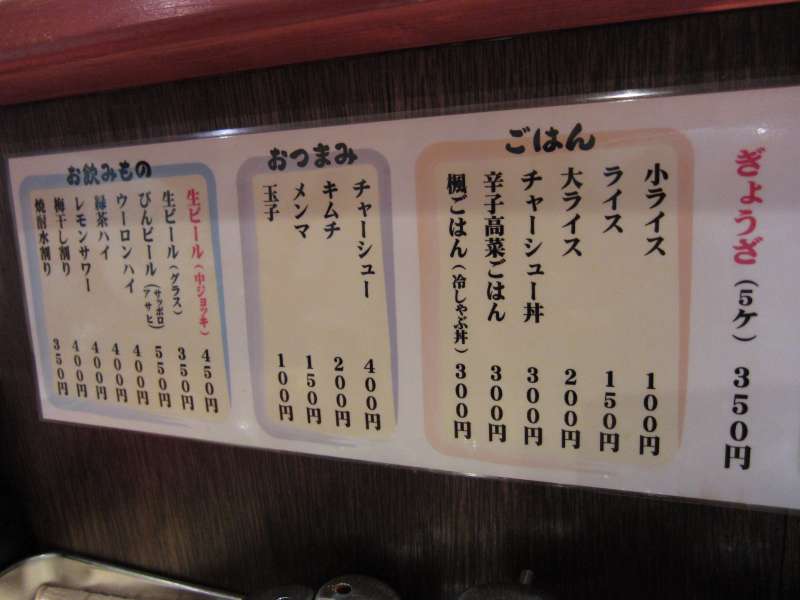 ぎょうざ（5ケ） 350円
ごはん
小ライス 100円
ライス 150円
大ライス 200円
チャーシュー丼 300円
辛子高菜ごはん 300円
楓ごはん（冷しゃぶ丼） 300円
おつまみ
チャーシュー 400円
キムチ 200円
メンマ 150円
玉子 100円
お飲みもの
生ビール（中ジョッキ） 450円
生ビール（グラス） 350円
びんビール（サッポロ アサヒ） 550円
ウーロンハイ 400円
緑茶ハイ 400円
レモンサワー 400円
梅干し割り 400円
焼酎水割り 350円